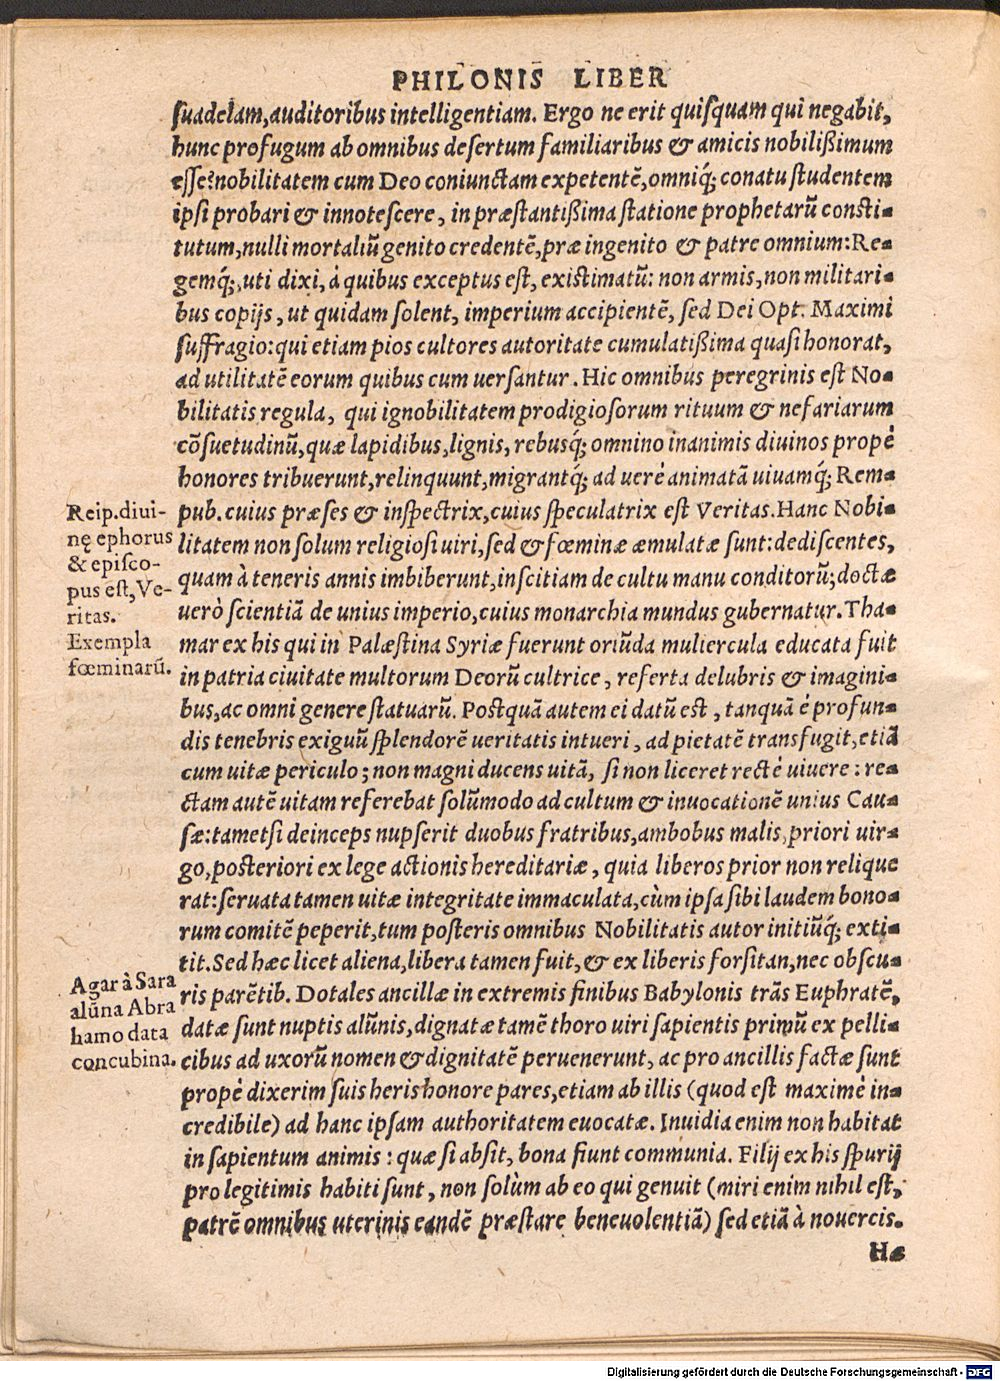 PHILONIS LIBER
suadelam,auditoribus intelligentiam. Ergo ne erit quisquam qui negabit,
hunc profugum ab omnibus desertum familiaribus & amicis nobilißimum
esse?nobilitatem cum Deo coniunctam expetentē,omniq́; conatu studentem
ipsi probari & innotescere, in præstantißima statione prophetarū consti-
tutum,nulli mortaliū genito credentē,præ ingenito & patre omnium:Re-
gemq́;,uti dixi,à quibus exceptus est, existimatū: non armis,non militari-
bus copijs, ut quidam solent, imperium accipientē, sed Dei Opt. Maximi
suffragio:qui etiam pios cultores autoritate cumulatißima quasi honorat,
ad utilitatē eorum quibus cum uersantur. Hic omnibus peregrinis est No-
bilitatis regula, qui ignobilitatem prodigiosorum rituum & nefariarum
cōsuetudinū,quæ lapidibus,lignis, rebusq́; omnino inanimis diuinos propè
honores tribuerunt,relinquunt,migrantq́; ad uerè animatā uiuamq́; Rem-
pub.cuius præses & inspectrix,cuius speculatrix est Veritas.Hanc Nobi-
litatem non solum religiosi uiri,sed & fœminæ æmulatæ sunt:dediscentes,
quam à teneris annis imbiberunt,inscitiam de cultu manu conditorū;doctæ
uerò scientiā de unius imperio,cuius monarchia mundus gubernatur.Tha-
mar ex his qui in Palæstina Syriæ fuerunt oriūda muliercula educata fuit
in patria ciuitate multorum Deorū cultrice, referta delubris & imagini-
bus,ac omni genere statuarū. Postquā autem ei datū est, tanquā è profun-
dis tenebris exiguū splendorē ueritatis intueri, ad pietatē transfugit,etiā
cum uitæ periculo; non magni ducens uitā, si non liceret rectè uiuere: re-
ctam autē uitam referebat solūmodo ad cultum & inuocationē unius Cau-
sæ:tametsi deinceps nupserit duobus fratribus,ambobus malis,priori uir-
go,posteriori ex lege actionis hereditariæ, quia liberos prior non relique
rat:seruata tamen uitæ integritate immaculata,cùm ipsa sibi laudem bono-
rum comitē peperit,tum posteris omnibus Nobilitatis autor initiūq́; exti-
tit.Sed hæc licet aliena,libera tamen fuit,& ex liberis forsitan,nec obscu-
ris parētib. Dotales ancillæ in extremis finibus Babylonis trās Euphratē,
datæ sunt nuptis alūnis,dignatæ tamē thoro uiri sapientis primū ex pelli-
cibus ad uxorū nomen & dignitatē peruenerunt, ac pro ancillis factæ sunt
propè dixerim suis heris honore pares,etiam ab illis (quod est maximè in-
credibile) ad hanc ipsam authoritatem euocatæ. Inuidia enim non habitat
in sapientum animis: quæ si absit, bona fiunt communia. Filij ex his spurij
pro legitimis habiti sunt, non solùm ab eo qui genuit (miri enim nihil est,
patrē omnibus uterinis eandē præstare beneuolentiā) sed etiā à nouercis.
Hæ
Reip.diui-
nę ephorus
& episco-
pus est,Ve-
ritas.
Exempla
fœminarū.
Agar à Sara
alūna Abra
hamo data
concubina.
Digitalisierung gefördert durch die Deutsche Forschungsgemeinschaft - DFG